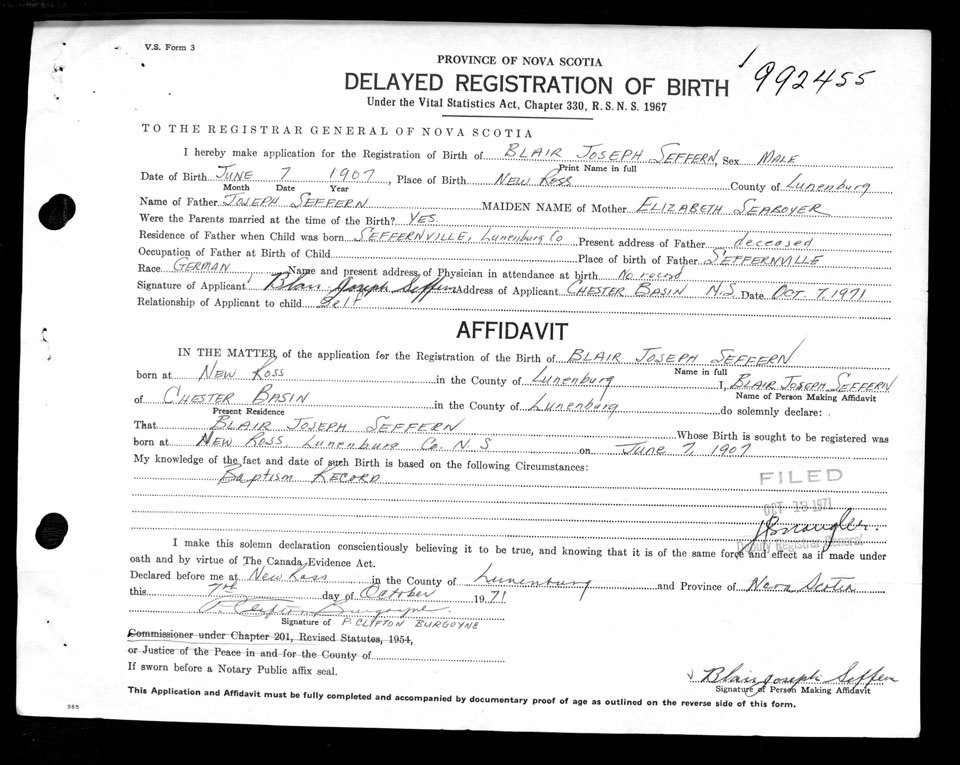 V.S. Form 3
PROVINCE OF NOVA SCOTIA
DELAYED REGISTRATION OF BIRTH
992455
Under the Vital Statistics Act, Chapter 330, R. S. N. S. 1967
TO THE REGISTRAR GENERAL OF NOVA SCOTIA
I hereby make application for the Registration of Birth of BLAIR JOSEPH SEFFERN, Sex MALE
Print Name in full
Date of Birth JUNE 7 1907, Place of Birth NEW ROSS County of Lunenburg
Month Date Year
Name of Father JOSEPH SEFFERN MAIDEN NAME of Mother ELIZABETH SEABOYER
Were the Parents married at the time of the Birth? YES.
Residence of Father when Child was born SEFFERNVILLE, Lunenburg Co Present address of Father deceased
Occupation of Father at Birth of Child Place of birth of Father SEFFERNVILLE
Race GERMAN Name and present address of Physician in attendance at birth No record
Signature of Applicant Blair Joseph Seffern Address of Applicant CHESTER BASIN N.S Date OCT. 7, 1971
Relationship of Applicant to child Self
AFFIDAVIT
IN THE MATTER of the application for the Registration of the Birth of BLAIR JOSEPH SEFFERN
Name in full
born at NEW ROSS in the County of Lunenburg I, BLAIR JOSEPH SEFFERN
Name of Person Making Affidavit
of CHESTER BASIN in the County of Lunenburg do solemnly declare:
Present Residence
That BLAIR JOSEPH SEFFERN Whose Birth is sought to be registered was
born at NEW ROSS, Lunenburg Co. N.S on June 7, 1907
My knowledge of the fact and date of such Birth is based on the following Circumstances:
Baptism RECORD
FILED
OCT 13 1971
Deputy Registrar General
I make this solemn declaration conscientiously believing it to be true, and knowing that it is of the same force and effect as if made under
oath and by virtue of The Canada Evidence Act.
Declared before me at New Ross in the County of Lunenburg and Province of Nova Scotia
this 7th day of October 1971
P. Clifton Burgoyne
Signature of P. CLIFTON BURGOYNE
Commissioner under Chapter 201, Revised Statutes, 1954,
or Justice of the Peace in and for the County of
If sworn before a Notary Public affix seal.
Blair Joseph Seffern
Signature of Person Making Affidavit
This Application and Affidavit must be fully completed and accompanied by documentary proof of age as outlined on the reverse side of this form.